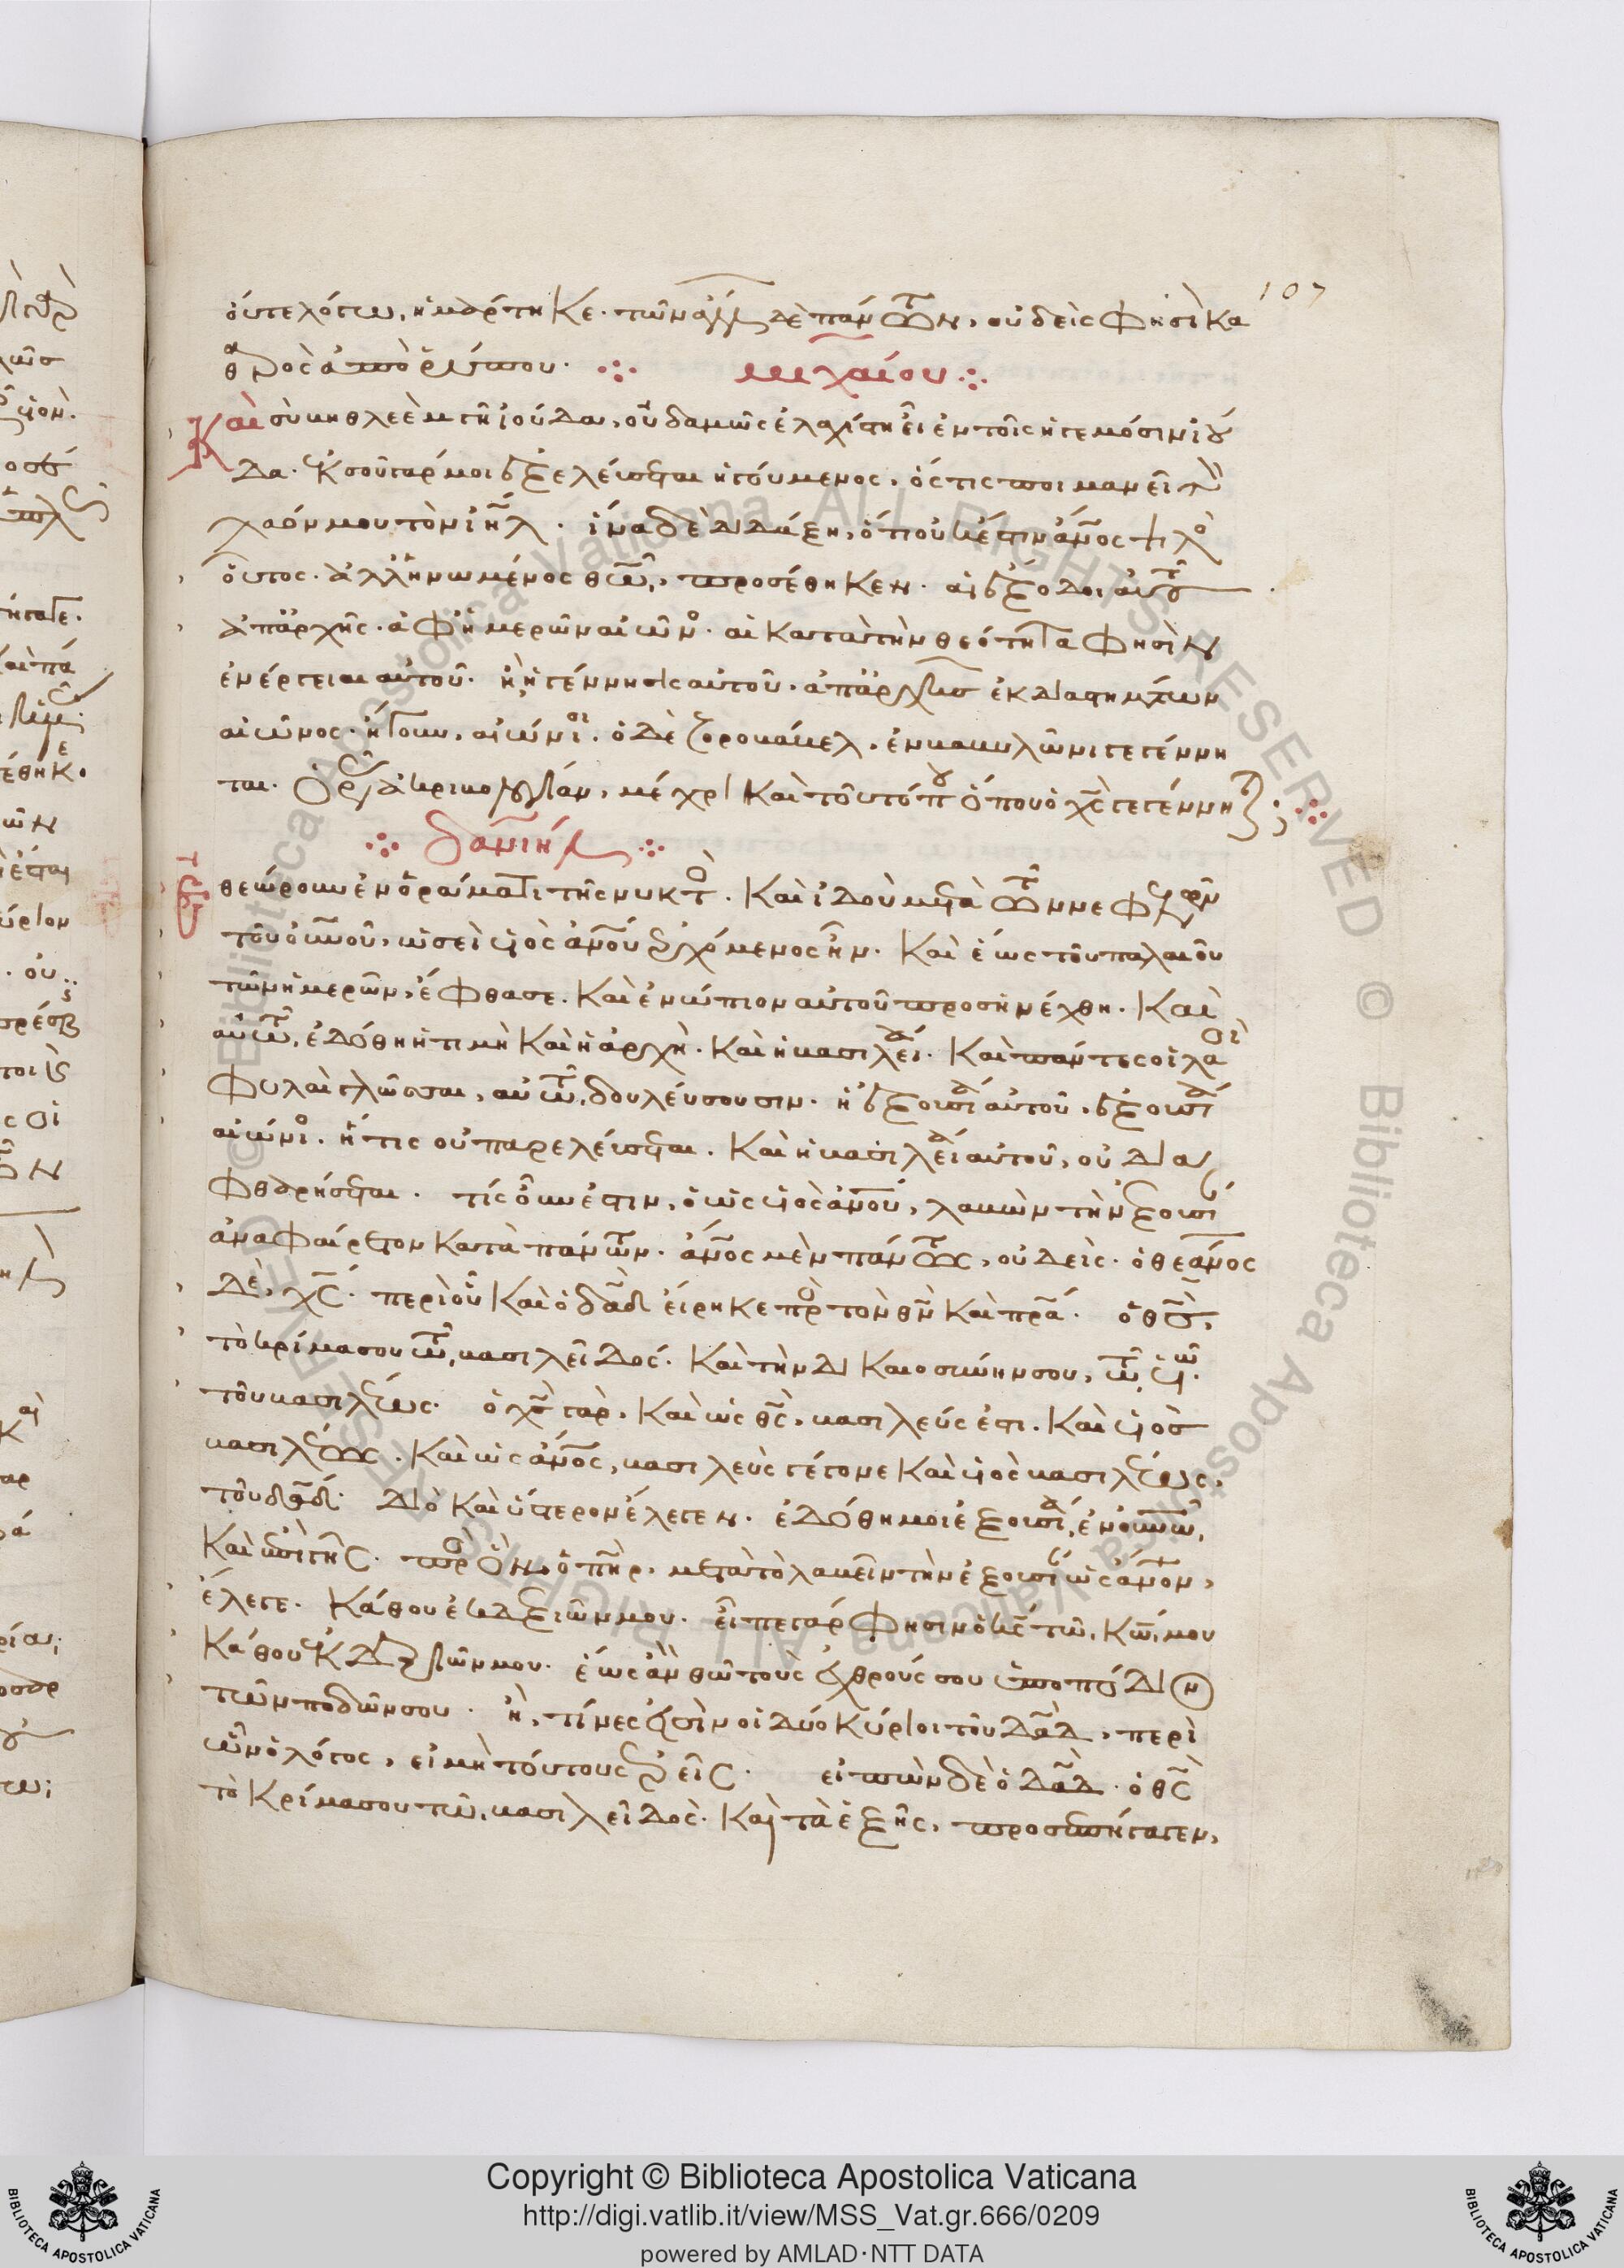 107
οὔτε λόγω, ἡμάρτηκε· τῶν ἄλλ δὲ πάντων, οὐδεὶς φησὶ κα
θαρὸς ἀπὸ ῥύπου·
μιχαίου
Καὶ σὺ βηθλεὲμ γῆ ἰούδα, οὐδαμῶς ἐλαχίστη εἶ ἐν τοῖς ἡγεμόσιν ἰού
δα· ἐκ σοῦ γάρ μοι ἐξελεύσεται ἡγούμενος, ὅστις ποιμανεῖ τὸν
λαόν μου τὸν ἰηλ· ἵνα δὲ διδάξη, ὅτι οὐκ ἔστιν ἄνος ψιλὸ
οὗτος· ἀλλ' ἡνωμένος θεῶ, προσέθηκεν· αἱ ἔξοδοι αὐτοῦ
ἀπ' ἀρχῆς· ἀφ' ἡμερῶν αἰῶνο· αἱ κατὰ τὴν θεότητα φησὶν
ἐνέργειαι αὐτοῦ· ἢ ἡ γέννησις αὐτοῦ· ἀπ' ἀρχῆς ἐκ διαστημάτων
αἰῶνος· ἤγουν, αἰώνιοι· ὁ δὲ ζοροβάβελ, ἐν βαβυλῶνι γεγέννη
ται· μέχρι καὶ τοῦ τόπου ὅπου ὁ χς γεγέννηται;
δανιήλ
θεώρουν ἐν ὁράματι τῆς νυκτὸ· καὶ ἰδοὺ μετὰ τῶν νεφελῶν
τοῦ οὐνοῦ, ὡσεὶ υἱὸς ἀνου ἐρχόμενος ἦν· καὶ ἕως τοῦ παλαιοῦ
τῶν ἡμερῶν, ἔφθασε· καὶ ἐνώπιον αὐτοῦ προσηνέχθη· καὶ
αὐτῶ, ἐδόθη ἡ τιμὴ καὶ ἡ ἀρχὴ· καὶ ἡ βασιλεία· καὶ πάντες οἱ λαοὶ
φυλαὶ γλῶσσαι, αὐτῶ, δουλεύσουσιν· ἡ ἐξουσία αὐτοῦ, ἐξουσία
αἰώνιο· ἥτις οὐ παρελεύσεται· καὶ ἡ βασιλεία αὐτοῦ, οὐ δια
φθαρήσεται· τίς οὖν ἐστιν, ὁ ὡς υἱὸς ἀνου, λαβὼν τὴν ἐξουσί
ἀναφαίρετον κατὰ πάντων· ἄνος μὲν πάντως, οὐδεὶς· ὁ θεάνος
δὲ, χς· περὶ οὗ καὶ ὁ δαδ εἴρηκε πρὸ τὸν θν καὶ πρα· ὁ θς,
τὸ κρίμα σου τῶ, βασιλεῖ δός· καὶ τὴν δικαιοσύνην σου, τῶ υἱῶ
τοῦ βασιλέως· ὁ χς γὰρ, καὶ ὡς θς, βασιλεύς ἐστι· καὶ υἱὸς
βασιλέως· καὶ ὡς ἄνος, βασιλεὺς γέγονε καὶ υἱὸς βασιλέως,
τοῦ δαδ· διὸ καὶ ὕστερον ἔλεγεν· ἐδόθη μοι ἐξουσία, ἐν οὐνῶ,
καὶ ἐπὶ γῆς· πρὸ ὃν, ὁ πηρ, μετὰ τὸ λαβεῖν τὴν ἐξουσί ὡς ἄνον,
ἔλεγε· κάθου ἐκ δεξιῶν μου· εἶπε γάρ φησιν ὁ κς τῶ, κω, μου
κάθου ἐκ δεξιῶν μου· ἕως ἂν θῶ τοὺς ἐχθρούς σου ὑποπόδιον
τῶν ποδῶν σου· ἢ, τίνες εἰσὶν οἱ δύο κύριοι τοῦ δαδ, περὶ
ὧν ὁ λόγος, εἰ μὴ τούτους ἐρεῖς· εἰπὼν δὲ ὁ δαδ· ὁ θς
τὸ κρίμα σου τῶ, βασιλεῖ δὸς· καὶ τὰ ἑξῆς, προσεπήγαγεν,
Copyright © Biblioteca Apostolica Vaticana
http://digi.vatlib.it/view/MSS_Vat.gr.666/0209
powered by AMLAD·NTT DATA